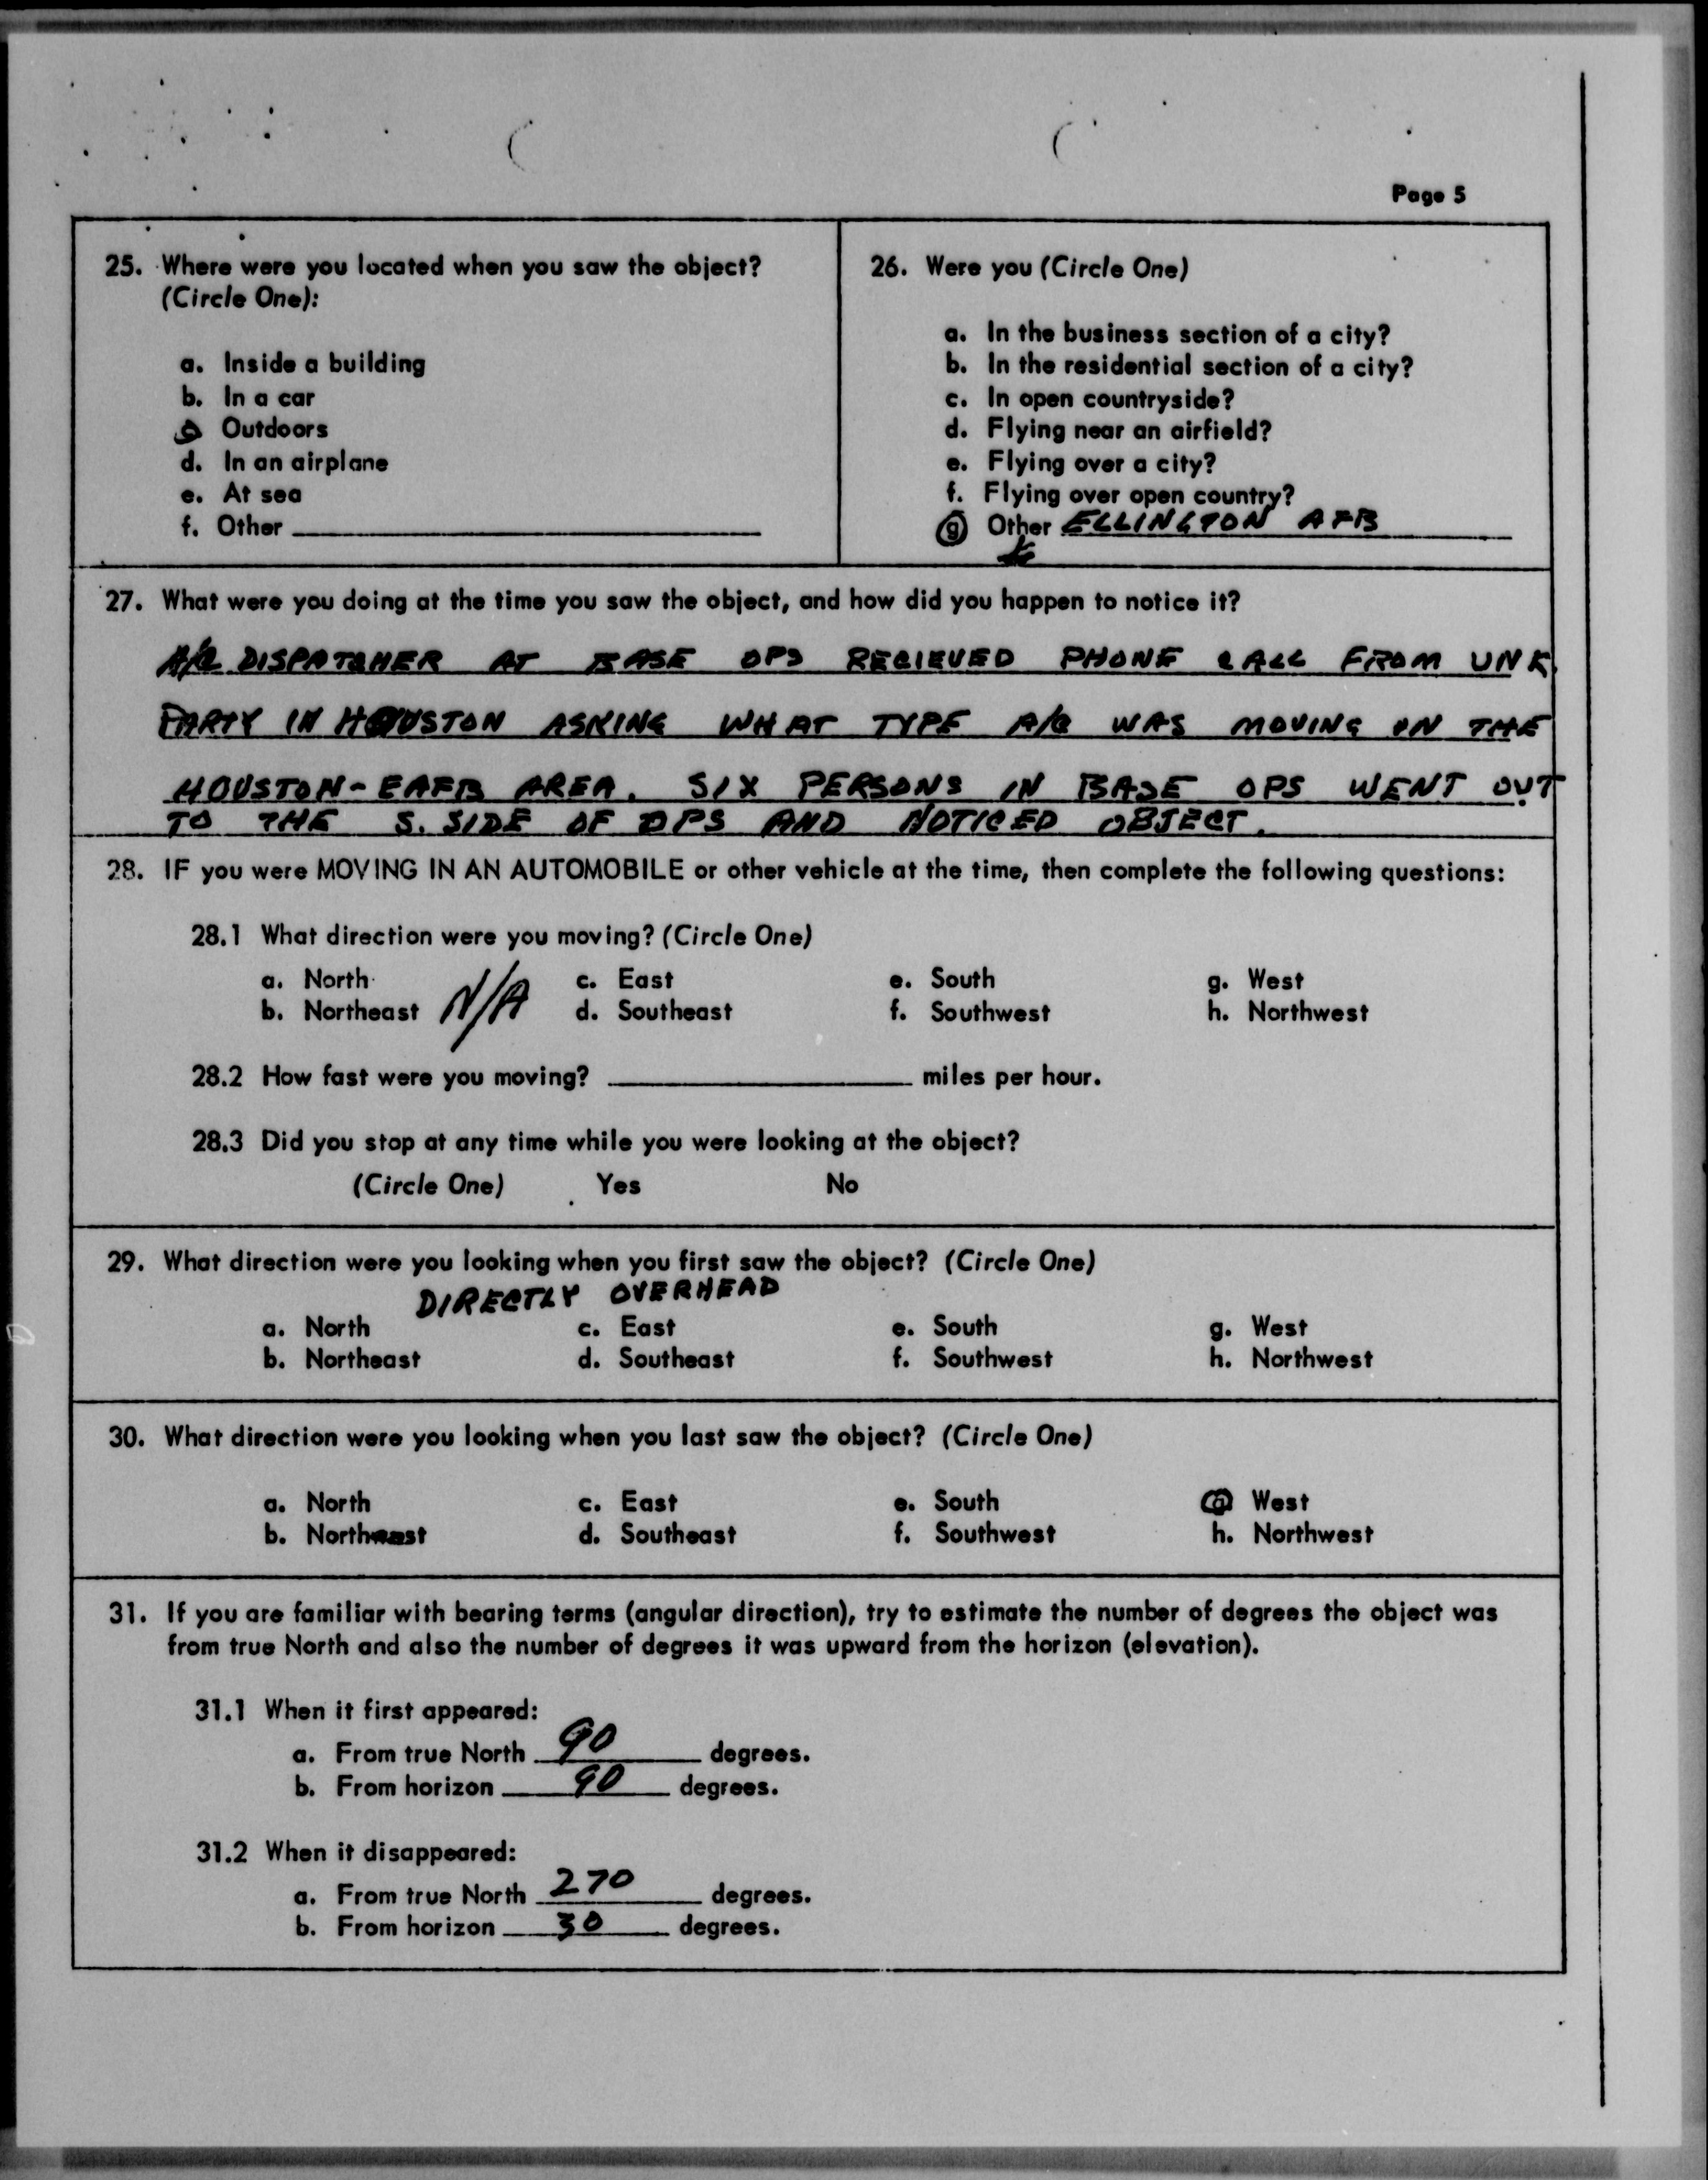 Page 5
25. Where were you located when you saw the object?
(Circle One):
a. Inside a building
b. In a car
c. Outdoors
d. In an airplane
e. At sea
f. Other
26. Were you (Circle One)
a. In the business section of a city?
b. In the residential section of a city?
c. In open countryside?
d. Flying near an airfield?
e. Flying over a city?
f. Flying over open country?
g. Other ELLINGTON AFB
27. What were you doing at the time you saw the object, and how did you happen to notice it?
A/C DISPATCHER AT BASE OPS RECIEVED PHONE CALL FROM UNK.
PARTY IN HOUSTON ASKING WHAT TYPE A/C WAS MOVING IN THE
HOUSTON-EAFB AREA. SIX PERSONS IN BASE OPS WENT OUT
TO THE S. SIDE OF OPS AND NOTICED OBJECT.
28. IF you were MOVING IN AN AUTOMOBILE or other vehicle at the time, then complete the following questions:
28.1 What direction were you moving? (Circle One)
a. North c. East e. South g. West
b. Northeast N/A d. Southeast f. Southwest h. Northwest
28.2 How fast were you moving? miles per hour.
28.3 Did you stop at any time while you were looking at the object?
(Circle One) Yes No
29. What direction were you looking when you first saw the object? (Circle One)
DIRECTLY OVERHEAD
a. North c. East e. South g. West
b. Northeast d. Southeast f. Southwest h. Northwest
30. What direction were you looking when you last saw the object? (Circle One)
a. North c. East e. South g. West
b. Northeast d. Southeast f. Southwest h. Northwest
31. If you are familiar with bearing terms (angular direction), try to estimate the number of degrees the object was
from true North and also the number of degrees it was upward from the horizon (elevation).
31.1 When it first appeared:
a. From true North 90 degrees.
b. From horizon 90 degrees.
31.2 When it disappeared:
a. From true North 270 degrees.
b. From horizon 30 degrees.